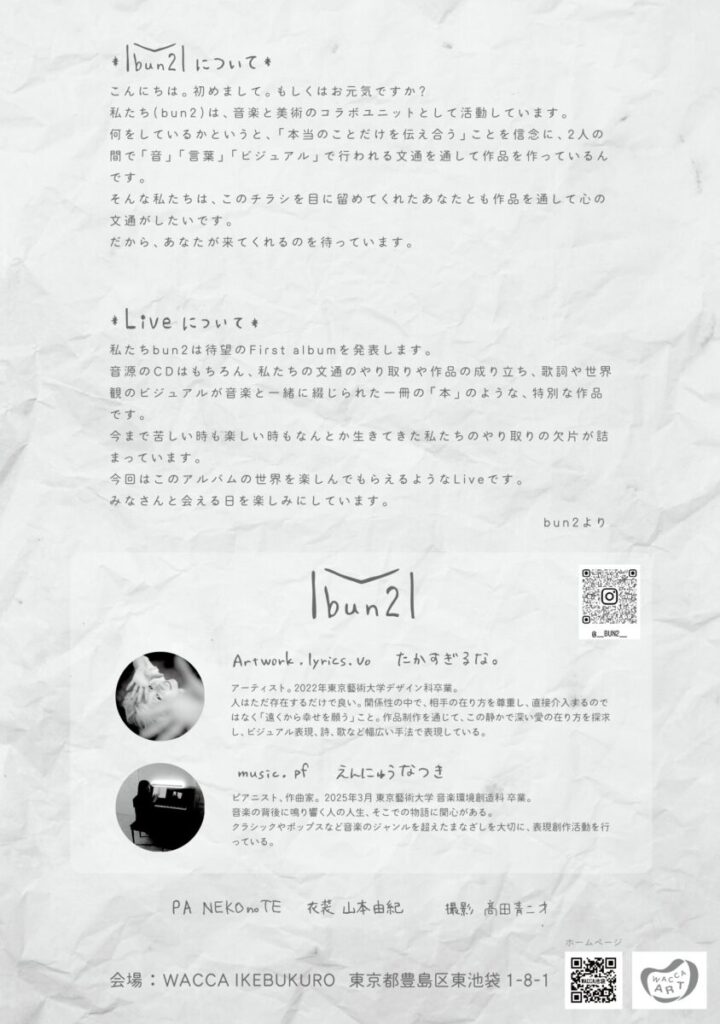 *|bun2|について*
こんにちは。初めまして。もしくはお元気ですか？
私たち(bun2)は、音楽と美術のコラボユニットとして活動しています。
何をしているかというと、「本当のことだけを伝え合う」ことを信念に、2人の
間で「音」「言葉」「ビジュアル」で行われる文通を通して作品を作っているん
です。
そんな私たちは、このチラシを目に留めてくれたあなたとも作品を通して心の
文通がしたいです。
だから、あなたが来てくれるのを待っています。
*Liveについて*
私たちbun2は待望のFirst albumを発表します。
音源のCDはもちろん、私たちの文通のやり取りや作品の成り立ち、歌詞や世界
観のビジュアルが音楽と一緒に綴じられた一冊の「本」のような、特別な作品
です。
今まで苦しい時も楽しい時もなんとか生きてきた私たちのやり取りの欠片が詰
まっています。
今回はこのアルバムの世界を楽しんでもらえるようなLiveです。
みなさんと会える日を楽しみにしています。
bun2より
|bun2|
@__BUN2__
Artwork.lyrics.vo たかすぎるな。
アーティスト。2022年東京藝術大学デザイン科卒業。
人はただ存在するだけで良い。関係性の中で、相手の在り方を尊重し、直接介入するので
はなく「遠くから幸せを願う」こと。作品制作を通じて、この静かで深い愛の在り方を探求
し、ビジュアル表現、詩、歌など幅広い手法で表現している。
music.pf えんにゅうなつき
ピアニスト、作曲家。2025年3月 東京藝術大学 音楽環境創造科 卒業。
音楽の背後に鳴り響く人の人生、そこでの物語に関心がある。
クラシックやポップスなど音楽のジャンルを超えたまなざしを大切に、表現創作活動を行
っている。
PA NEKOnoTE 衣装 山本由紀 撮影 高田青二才
ホームページ
会場：WACCA IKEBUKURO 東京都豊島区東池袋 1-8-1
WACCA池袋
WACCA
ART